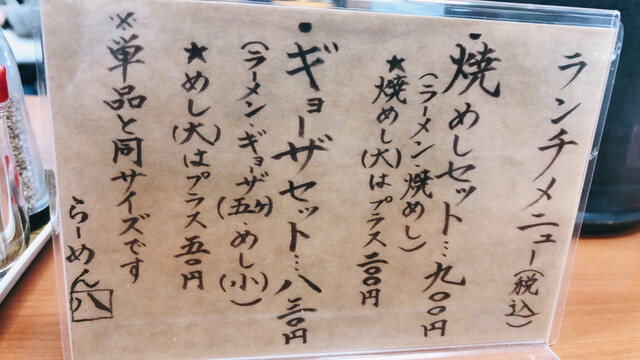 ランチメニュー(税込)
・焼めしセット…九〇〇円
(ラーメン・焼めし)
★焼めし(大)はプラス二〇〇円
・ギョーザセット…八三〇円
(ラーメン・ギョーザ(五ヶ)・めし(小))
★めし(大)はプラス五〇円
※単品と同サイズです
らーめん八